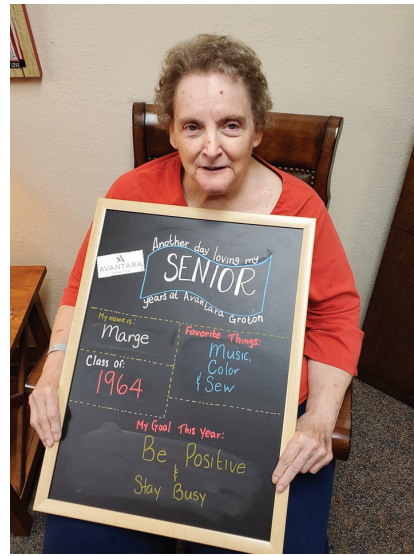 AVANTARA
Another day loving my
SENIOR
years at Avantara Groton
My name is:
Marge
Class of:
1964
Favorite Things:
Music,
Color
& Sew
My Goal This Year:
Be Positive
&
Stay Busy